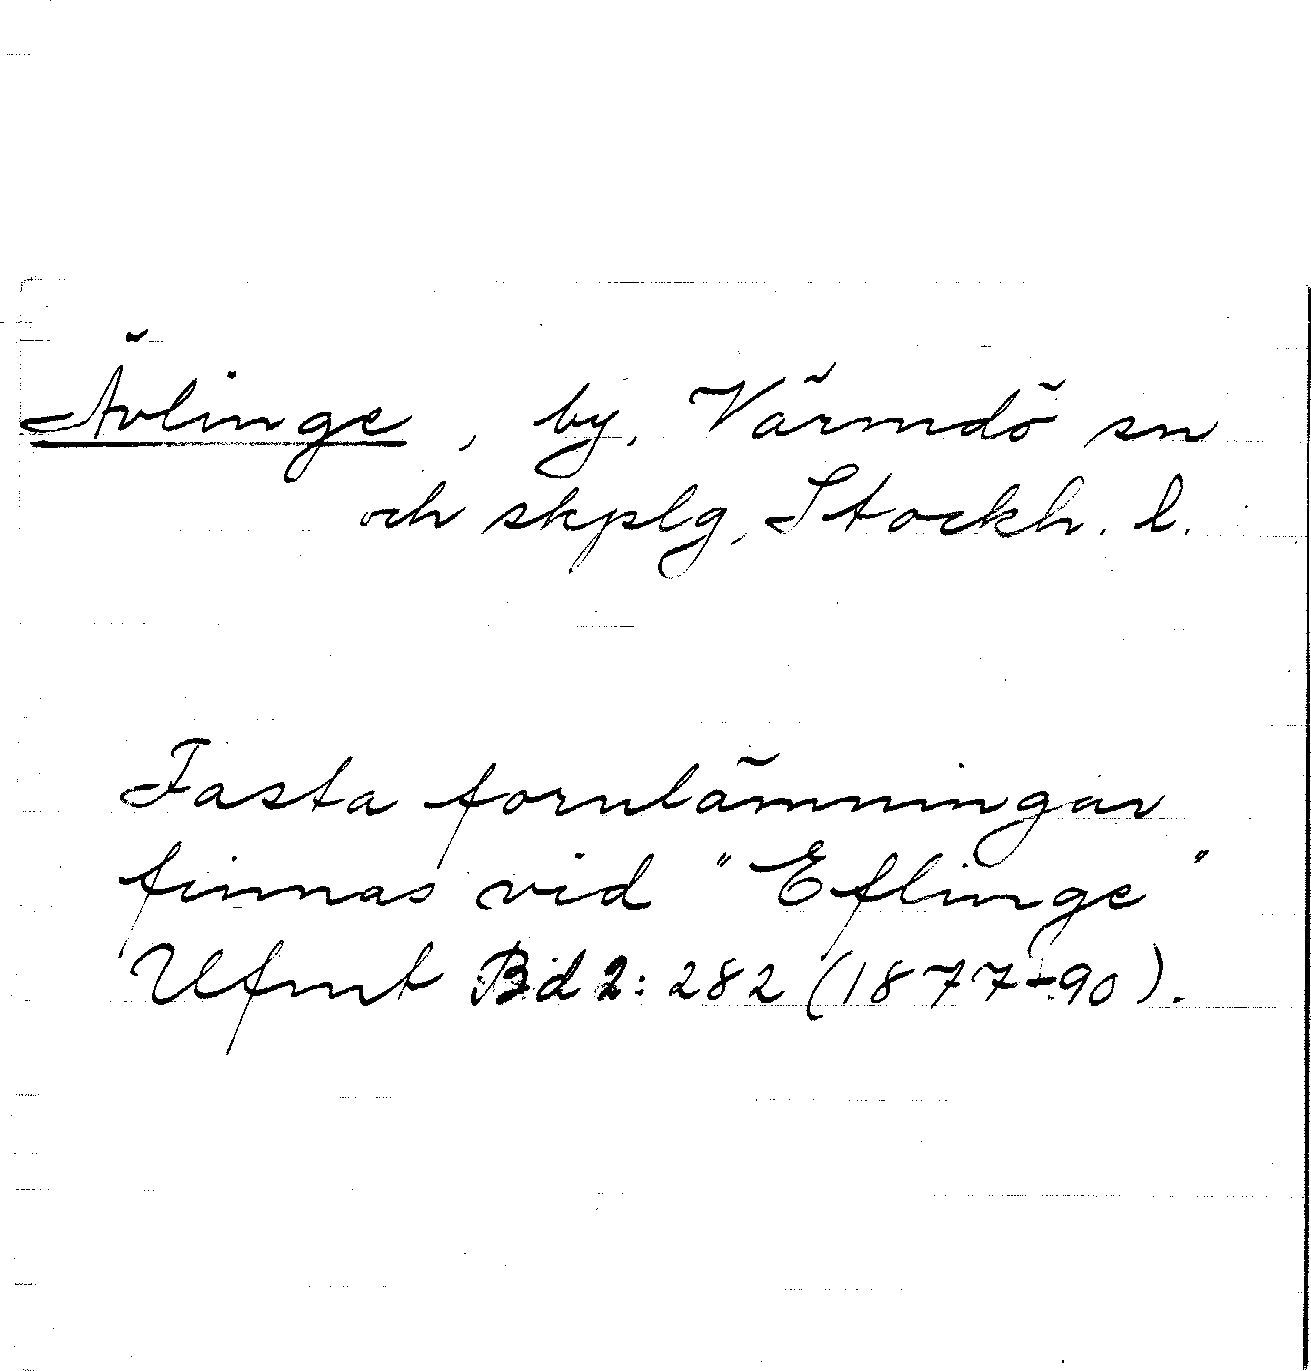 Ävlinge, by, Värmdö sn
och skplg, Stockh. l.
Fasta fornlämningar
finnas vid "Eflinge"
Ufmt Bd 2: 282 (1877-90).